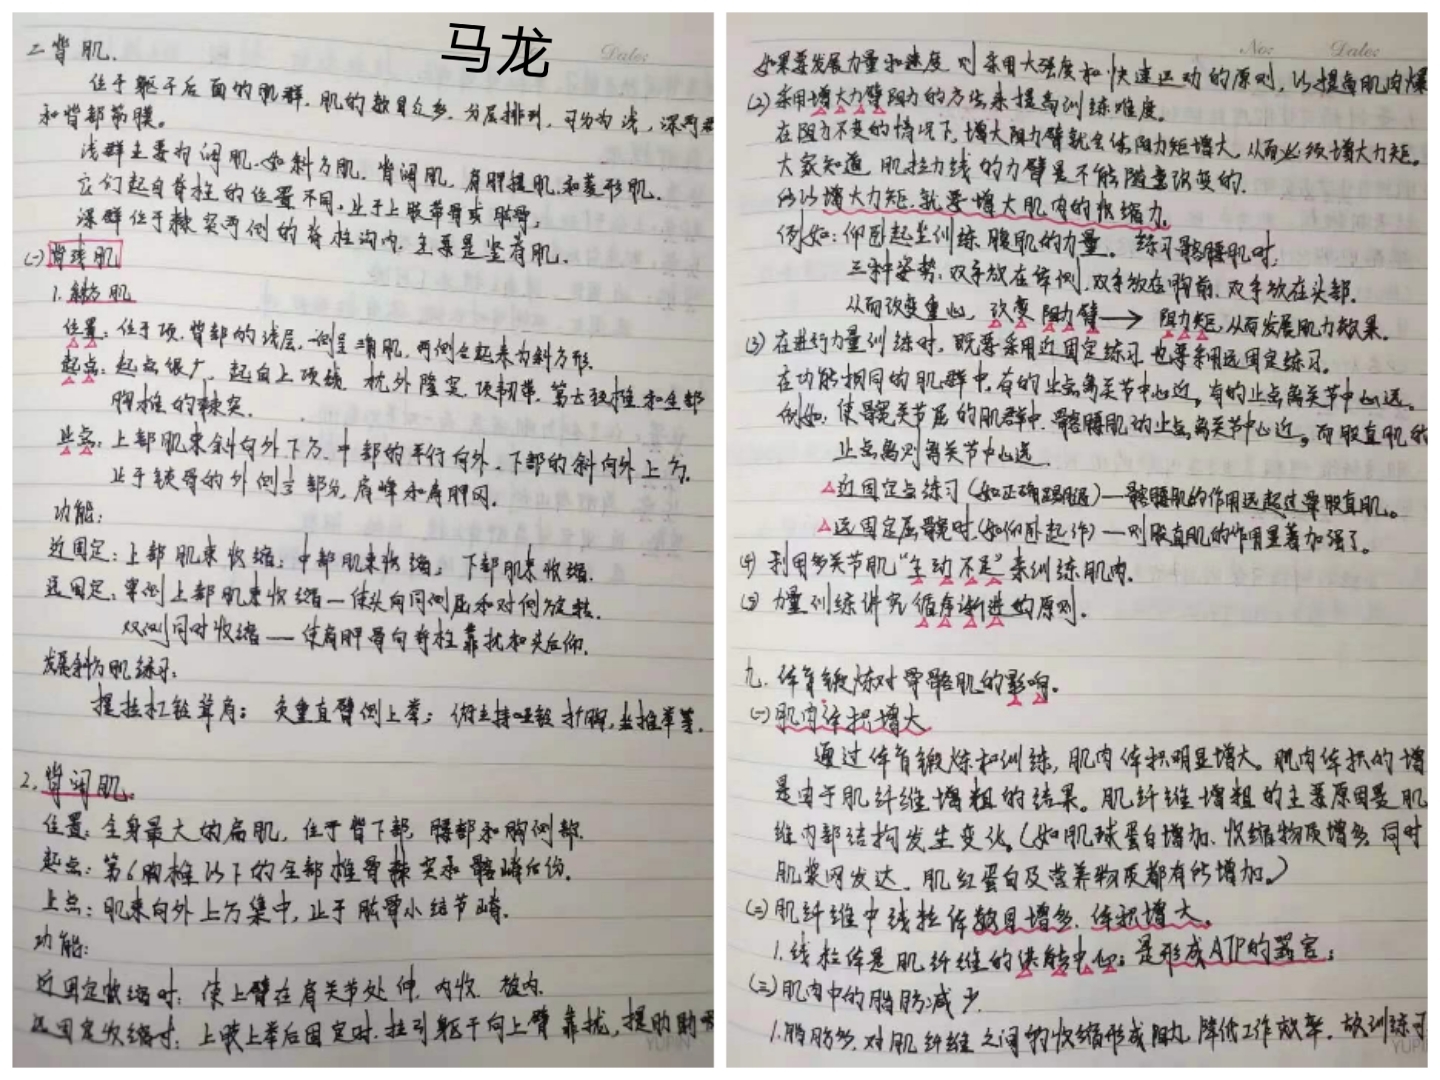 马龙
Date:
二背肌.
位于躯干后面的肌群.肌的数目众多.分层排列,可分为浅,深两群
和背部筋膜。
浅群主要为阔肌.如斜方肌.背阔肌,肩胛提肌和菱形肌.
它们起自脊柱的位置不同,止于上肢带骨或肱骨;
深群位于棘突两侧的脊柱沟内.主要是竖脊肌.
(一)背浅肌
1.斜方肌
位置:位于项.背部的浅层.一侧呈三角肌,两侧合起来为斜方形.
起点:起点很广,起自上项线 枕外隆突.项韧带.第七颈椎和全部
胸椎的棘突.
止点:上部肌束斜向外下方.中部的平行向外.下部的斜向外上方.
止于锁骨的外侧⅓部分,肩峰和肩胛冈.
功能:
近固定:上部肌束收缩;中部肌束收缩;下部肌束收缩.
远固定:单侧上部肌束收缩—使头向同侧屈和对侧旋转.
双侧同时收缩——使肩胛骨向脊柱靠拢和头后仰.
发展斜方肌练习:
提拉杠铃耸肩;负重直臂侧上举;俯立持哑铃扩胸,坐推举等.
2.背阔肌.
位置:全身最大的扁肌,位于背下部,腰部和胸侧部.
起点:第6胸椎以下的全部椎骨棘突和髂嵴后份.
止点:肌束向外上方集中,止于肱骨小结节嵴.
功能:
近固定收缩时:使上臂在肩关节处伸.内收.旋内.
远固定收缩时:上肢上举后固定时.拉引躯干向上臂靠拢,提肋助吸
No: Date:
如果要发展力量和速度 则采用大强度和快速运动的原则,以提高肌肉爆
(2)采用增大力臂阻力的方法来提高训练难度。
在阻力不变的情况下,增大阻力臂就会使阻力矩增大,从而必须增大力矩。
大家知道,肌拉力线的力臂是不能随意改变的.
所以增大力矩.就要增大肌肉的收缩力.
例如:仰卧起坐训练腹肌的力量。练习髂腰肌时,
三种姿势:双手放在体侧,双手放在胸前.双手放在头部.
从而改变重心,改变阻力臂→阻力矩,从而发展肌力效果.
(3)在进行力量训练时,既要采用近固定练习.也要采用远固定练习.
在功能相同的肌群中,有的止点离关节中心近,有的止点离关节中心远.
例如:使髋关节屈的肌群中,髂腰肌的止点离关节中心近。而股直肌的
止点离则离关节中心远.
近固定点练习(如正确踢腿)—髂腰肌的作用远超过骨股直肌。
远固定屈髋时.(如仰卧起作)—则股直肌的作用显著加强了。
(4)利用多关节肌“主动不足”来训练肌肉.
(5)力量训练讲究循序渐进的原则.
九.体育锻炼对骨骼肌的影响。
(一)肌肉体积增大
通过体育锻炼和训练,肌肉体积明显增大。肌肉体积的增
是由于肌纤维增粗的结果。肌纤维增粗的主要原因是肌
维内部结构发生变化。(如肌球蛋白增加.收缩物质增多.同时
肌浆网发达.肌红蛋白及营养物质都有所增加。)
(二)肌纤维中线粒体数目增多.体积增大。
1.线粒体是肌纤维的供能中心;是形成ATP的器官;
(三)肌肉中的脂肪减少.
1.脂肪多,对肌纤维之间的收缩形成阻力,降低工作效率.故训练可